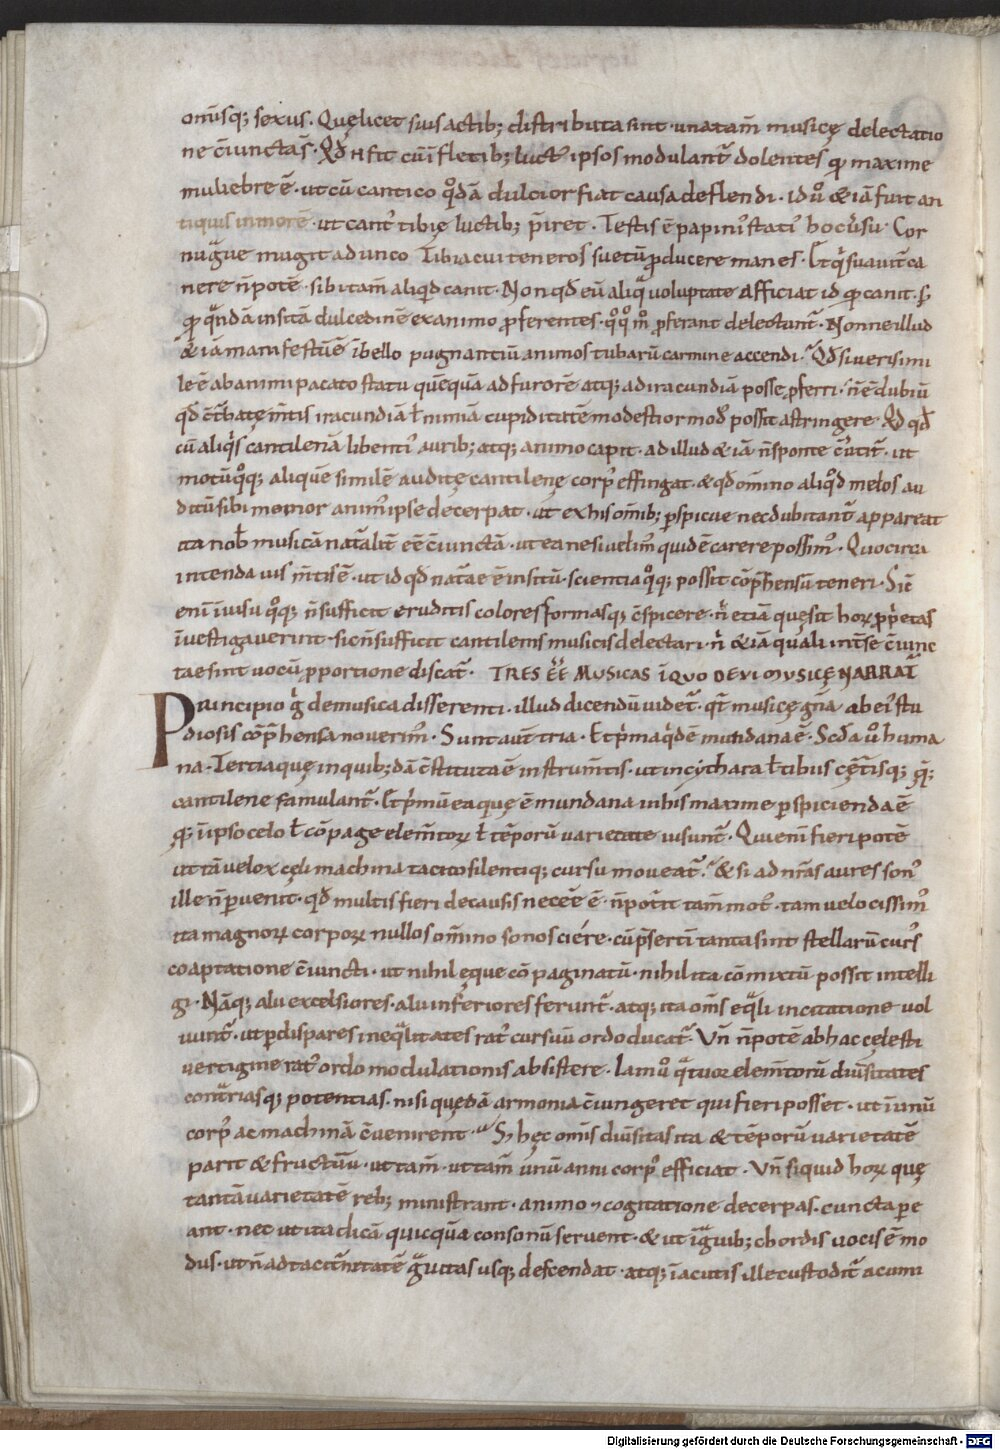 omīsq; sexus. Quęlicet suis actib; distributa sint · una tam̄ musicę delectatio
ne c̄iunctas̄ · Qd̄ n̄ fit cū ī fletib; luct᷒ ipsos modulant̄ dolentes qp̄ maxime
muliebre ē · ut cū cantico qͦdā dulcior fiat causa deflendi · id uͦ & iā fuit an
tiquis in morē · ut cant᷒ tibię luctib; p̄iret · Testis ē papini᷒ stati᷒ hoc u̅su · Cor
nu ͣgͣue mugit adunco Tibia cui teneros suetū ꝓducere manes · Et qͥ suauit̄ ca
nere n̄ potē · sibi tam̄ aliqͥd canit · Non qd̄ eū aliqͣ voluptate afficiat id qp̄ canit · s;
qp̄ qͣndā insitā dulcedinē ex animo ꝓferentes · qͦqͦ mͦ ꝓferant delectant̄ · Nonne illud
& iā manifestū ē ī bello pugnantiū animos tubarū carmine accendi · Qd̄ si uerisimi
le ē ab animi pacato statu quēquā ad furorē atq; ad iracundiā posse ꝓferri · n̄ ē dubiū
qd̄ c̄t̄batę m̄tis iracundiā ł nimiā cupiditatē modestior mod᷒ possit astringere · Qd̄ qd̄
cū aliqͥs cantilenā libenti᷒ aurib; atq; animo capit · ad illud & iā n̄ sponte c̄u̅tit̄ · ut
motū qͦq; aliquē similē auditę cantilenę corp᷒ effingat · & qd̄ om̄ino aliqͦd melos au
ditū sibi memor anim᷒ ipse decerpat · ut ex his om̄ib; ꝑspicue nec dubitant̄ appareat
ita nob̄ musicā natͣlit̄ eē c̄iunctā · ut ea ne si uelim᷒ quidē carere possim᷒ · Quocirca
intenda uis m̄tis ē · ut id qd̄ natͣae ē insitū · scientia qͦq; possit cōp̄hensū teneri · Sic̄
enī ī uisu qͦq; n̄ sufficit eruditis colores formasq; c̄spicere · nͥ etiā quę sit hoꝝ ꝓpͥetas
īuestigauerint · sic n̄ sufficit cantilenis musicis delectari · nͥ & iā quali int̄ se c̄iunc
tae sint uocū ꝓportione discat̄ · TRES EE᷒ MUSICAS ĪQUO DE VI MUSICĘ NARRAT̄
Principio gͥ de musica disserenti · illud dicendū uidet̄ · qt̄ musicę gn̄a ab ei᷒ stu
diosis cōp̄hensa nouerim᷒ · Sunt aut̄ tria · Et pͥma qͥdē mundana ē · Scd̄a uͦ huma
na · Tertia quę in quib;dā c̄stituta ē instrum̄tis · ut in cythara ł tibiis cęt̄isq; q̄;
cantilene famulant̄ · Et pͥmū ea quę ē mundana in his maxime ꝑspicienda ē
q̄; ī ipso celo ł cōpage elem̄toꝝ ł tēporū uarietate uisunt̄ · Qui enī fieri potē
ut tā uelox cęli machina tacito silentiq; cursu moueat̄ · & si ad nr̄as aures son᷒
ille n̄ ꝑuenit · qd̄ multis fieri de causis necēē ē · n̄ pot̄it tam̄ mot᷒ · tam uelocissim᷒
ita magnoꝝ corpoꝝ nullos om̄ino sonos ciére · cū p̄sertī tanta sint stellarū curs᷒
coaptatione c̄iuncti · ut nihil eque cōpaginatū · nihil ita cōmixtū possit intelli
gi · Nāq; alii excelsiores · alii inferiores ferunt̄ · atq; ita om̄s eqͣli incitatione uol
uunt̄ · ut ꝑ dispares ineqͣlitates rat᷒ cursuū ordo ducat̄ · Vn̄ n̄ potē ab hac cęlesti
uertigine rat᷒ ordo modulationis absistere · Iam uͦ qͣtuor elem̄torū diu̅sitates
contͣriasq; potentias · nisi quędā armonia c̄iungeret qui fieri posset · ut ī unū
corp᷒ ac machinā c̄uenirent · S; hęc om̄is diu̅sitas ita & tēporū uarietatē
parit & fructuū · ut tam̄ · ut tam̄ unū anni corp᷒ efficiat · Vn̄ si quid hoꝝ quę
tantā uarietatē reb; ministrant · animo ⁊ cogitatione decerpas · cuncta ꝑe
ant · nec ut ita dicā quicquā consonū seruent · & ut ī gͣuib; chordis uocis ē mo
dus · ut n̄ ad taciturnitatē gͣuitas usq; descendat · atq; ī acutis ille custodit̄ acumi
Digitalisierung gefördert durch die Deutsche Forschungsgemeinschaft - DFG